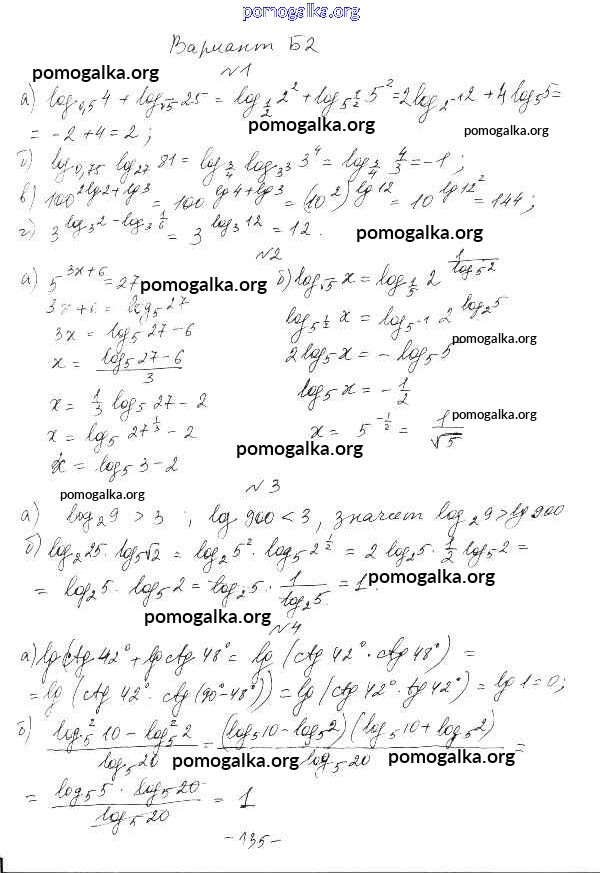 pomogalka.org
Вариант Б2
pomogalka.org
№1
а) log₀,₅4 + log_√5 25 = log_{1/2} 2² + log_{5^{1/2}} 5² = 2log_{2^{-1}}2 + 4log₅5 =
= -2 + 4 = 2;
pomogalka.org
pomogalka.org
б) log₀,₇₅ log₂₇ 81 = log_{3/4} log_{3³} 3⁴ = log_{3/4} 4/3 = -1;
в) 100^{2lg2+lg3} = 100^{lg4+lg3} = (10²)^{lg12} = 10^{lg12²} = 144;
г) 3^{log₃2 - log₃ 1/6} = 3^{log₃12} = 12.
pomogalka.org
№2
а) 5^{3x+6} = 27
pomogalka.org
3x+6 = log₅27
3x = log₅27 - 6
x = (log₅27 - 6)/3
x = 1/3 log₅27 - 2
x = log₅ 27^{1/3} - 2
x = log₅3 - 2
б) log_√5 x = log_{1/5} 2^{1/log₅2}
log_{5^{1/2}} x = log_{5^{-1}} 2^{log₂5}
pomogalka.org
2log₅x = - log₅5
log₅x = - 1/2
pomogalka.org
x = 5^{-1/2} = 1/√5
pomogalka.org
№3
pomogalka.org
а) log₂9 > 3 ; lg 900 < 3, значит log₂9 > lg900
б) log₂25 · log₅√2 = log₂5² · log₅2^{1/2} = 2 log₂5 · 1/2 log₅2 =
= log₂5 · log₅2 = log₂5 · 1/log₂5 = 1.
pomogalka.org
pomogalka.org
№4
а) lg ctg 42° + lg ctg 48° = lg (ctg 42° · ctg 48°) =
= lg (ctg 42° · ctg (90°-48°)) = lg (ctg 42° · tg 42°) = lg 1 = 0;
б) (log₅²10 - log₅²2)/log₅20 = (log₅10 - log₅2)(log₅10 + log₅2)/log₅20 =
pomogalka.org
pomogalka.org
= (log₅5 · log₅20)/log₅20 = 1
-135-